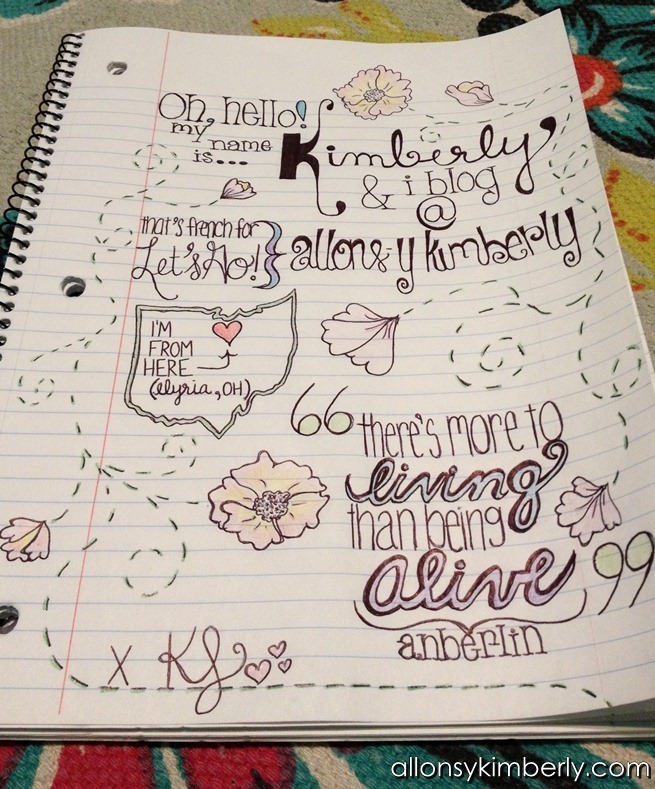 Oh, hello!
my name
is...
Kimberly
& i blog
@
that's french for
Let's Go! } allons-y kimberly
I'M
FROM
HERE
(elyria, OH)
“there's more to
living
than being
alive”
anberlin
X KJ
allonsykimberly.com